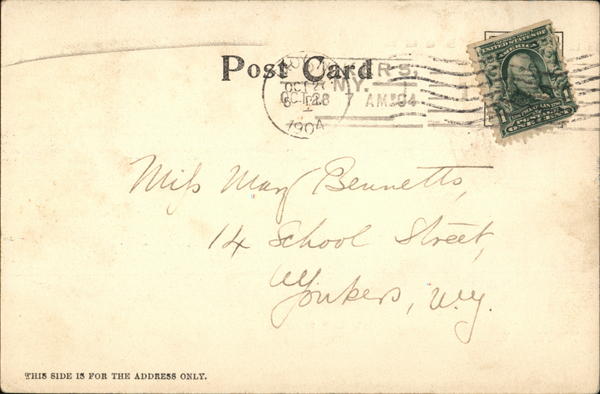 Post Card
YONKERS,
N.Y.
OCT 28 7 AM '04
1904
UNITED STATES OF
AMERICA
1 1
Miss May Bennetts,
14 School Street,
Yonkers, N.Y.
THIS SIDE IS FOR THE ADDRESS ONLY.